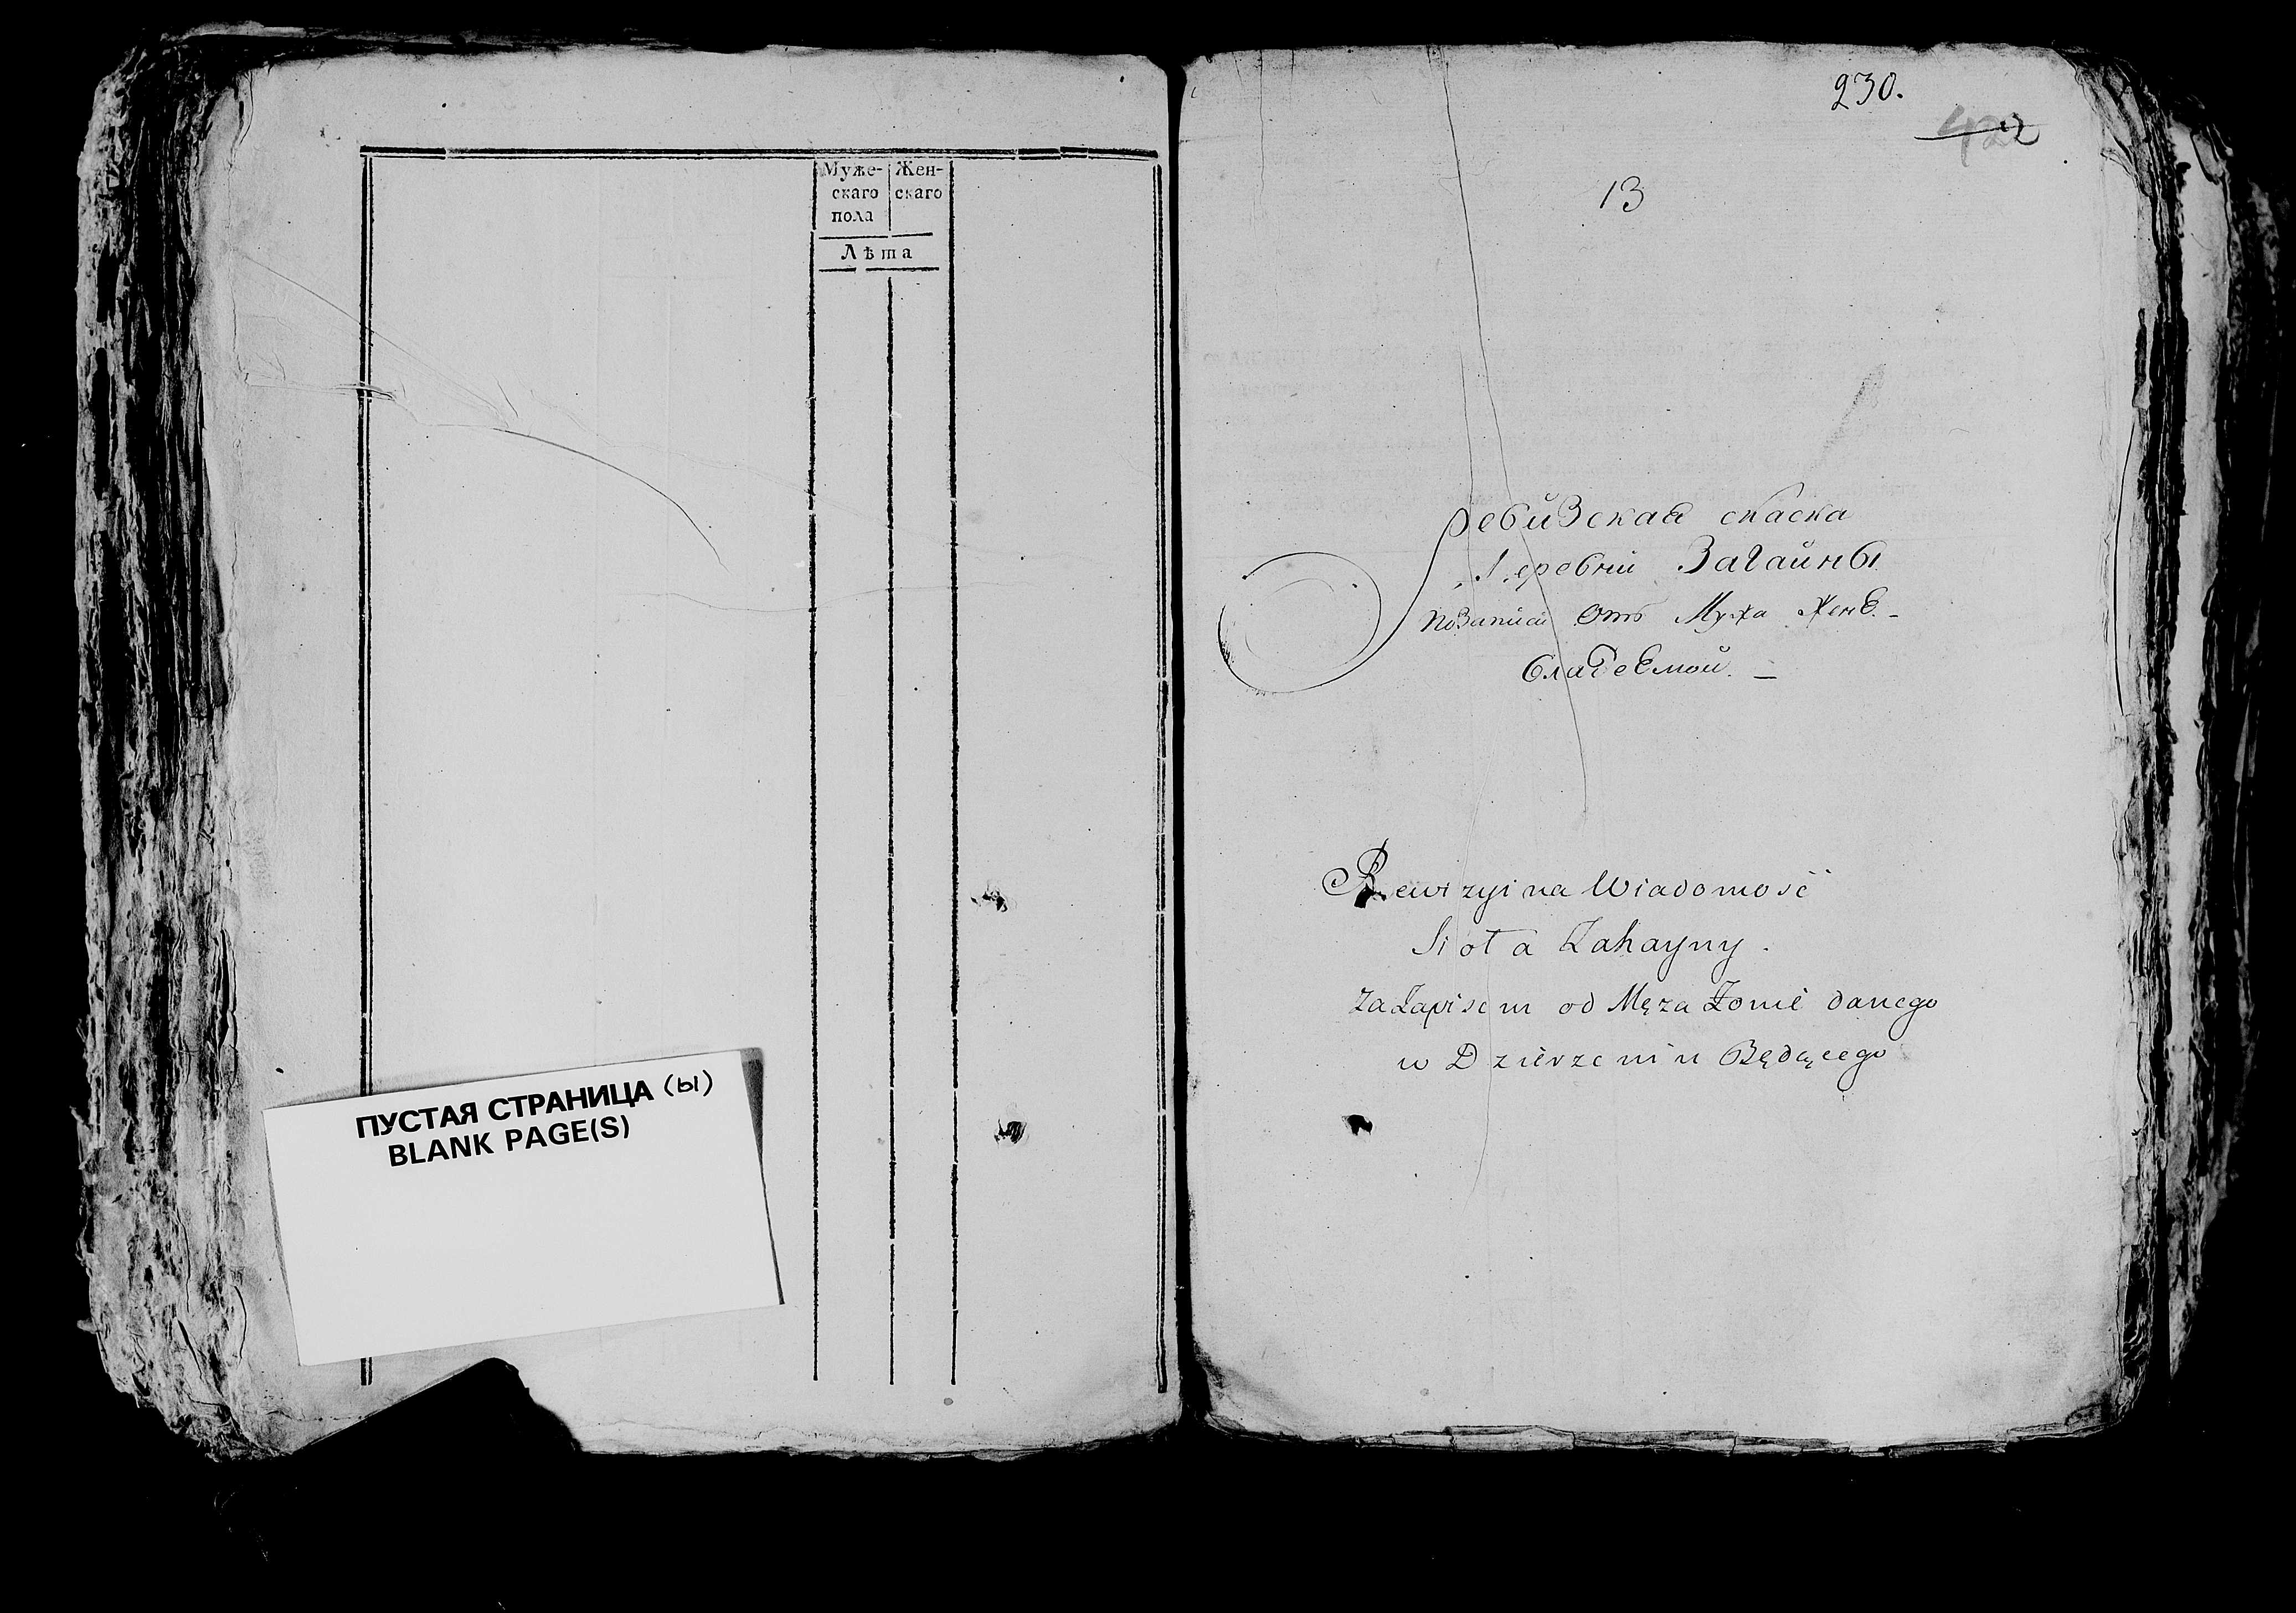 Муже-
скаго
пола
Жен-
скаго
Лѣта
ПУСТАЯ СТРАНИЦА (ы)
BLANK PAGE(S)
230.
422
13
Ревизская скаска
Деревни Загайны
по записи отъ Мужа женѣ
владеемой. —
Rewizyina Wiadomość
Sioła Zahayny.
Za Zapisem od Męza Zonie danego
w Dzierzeniu Będącego